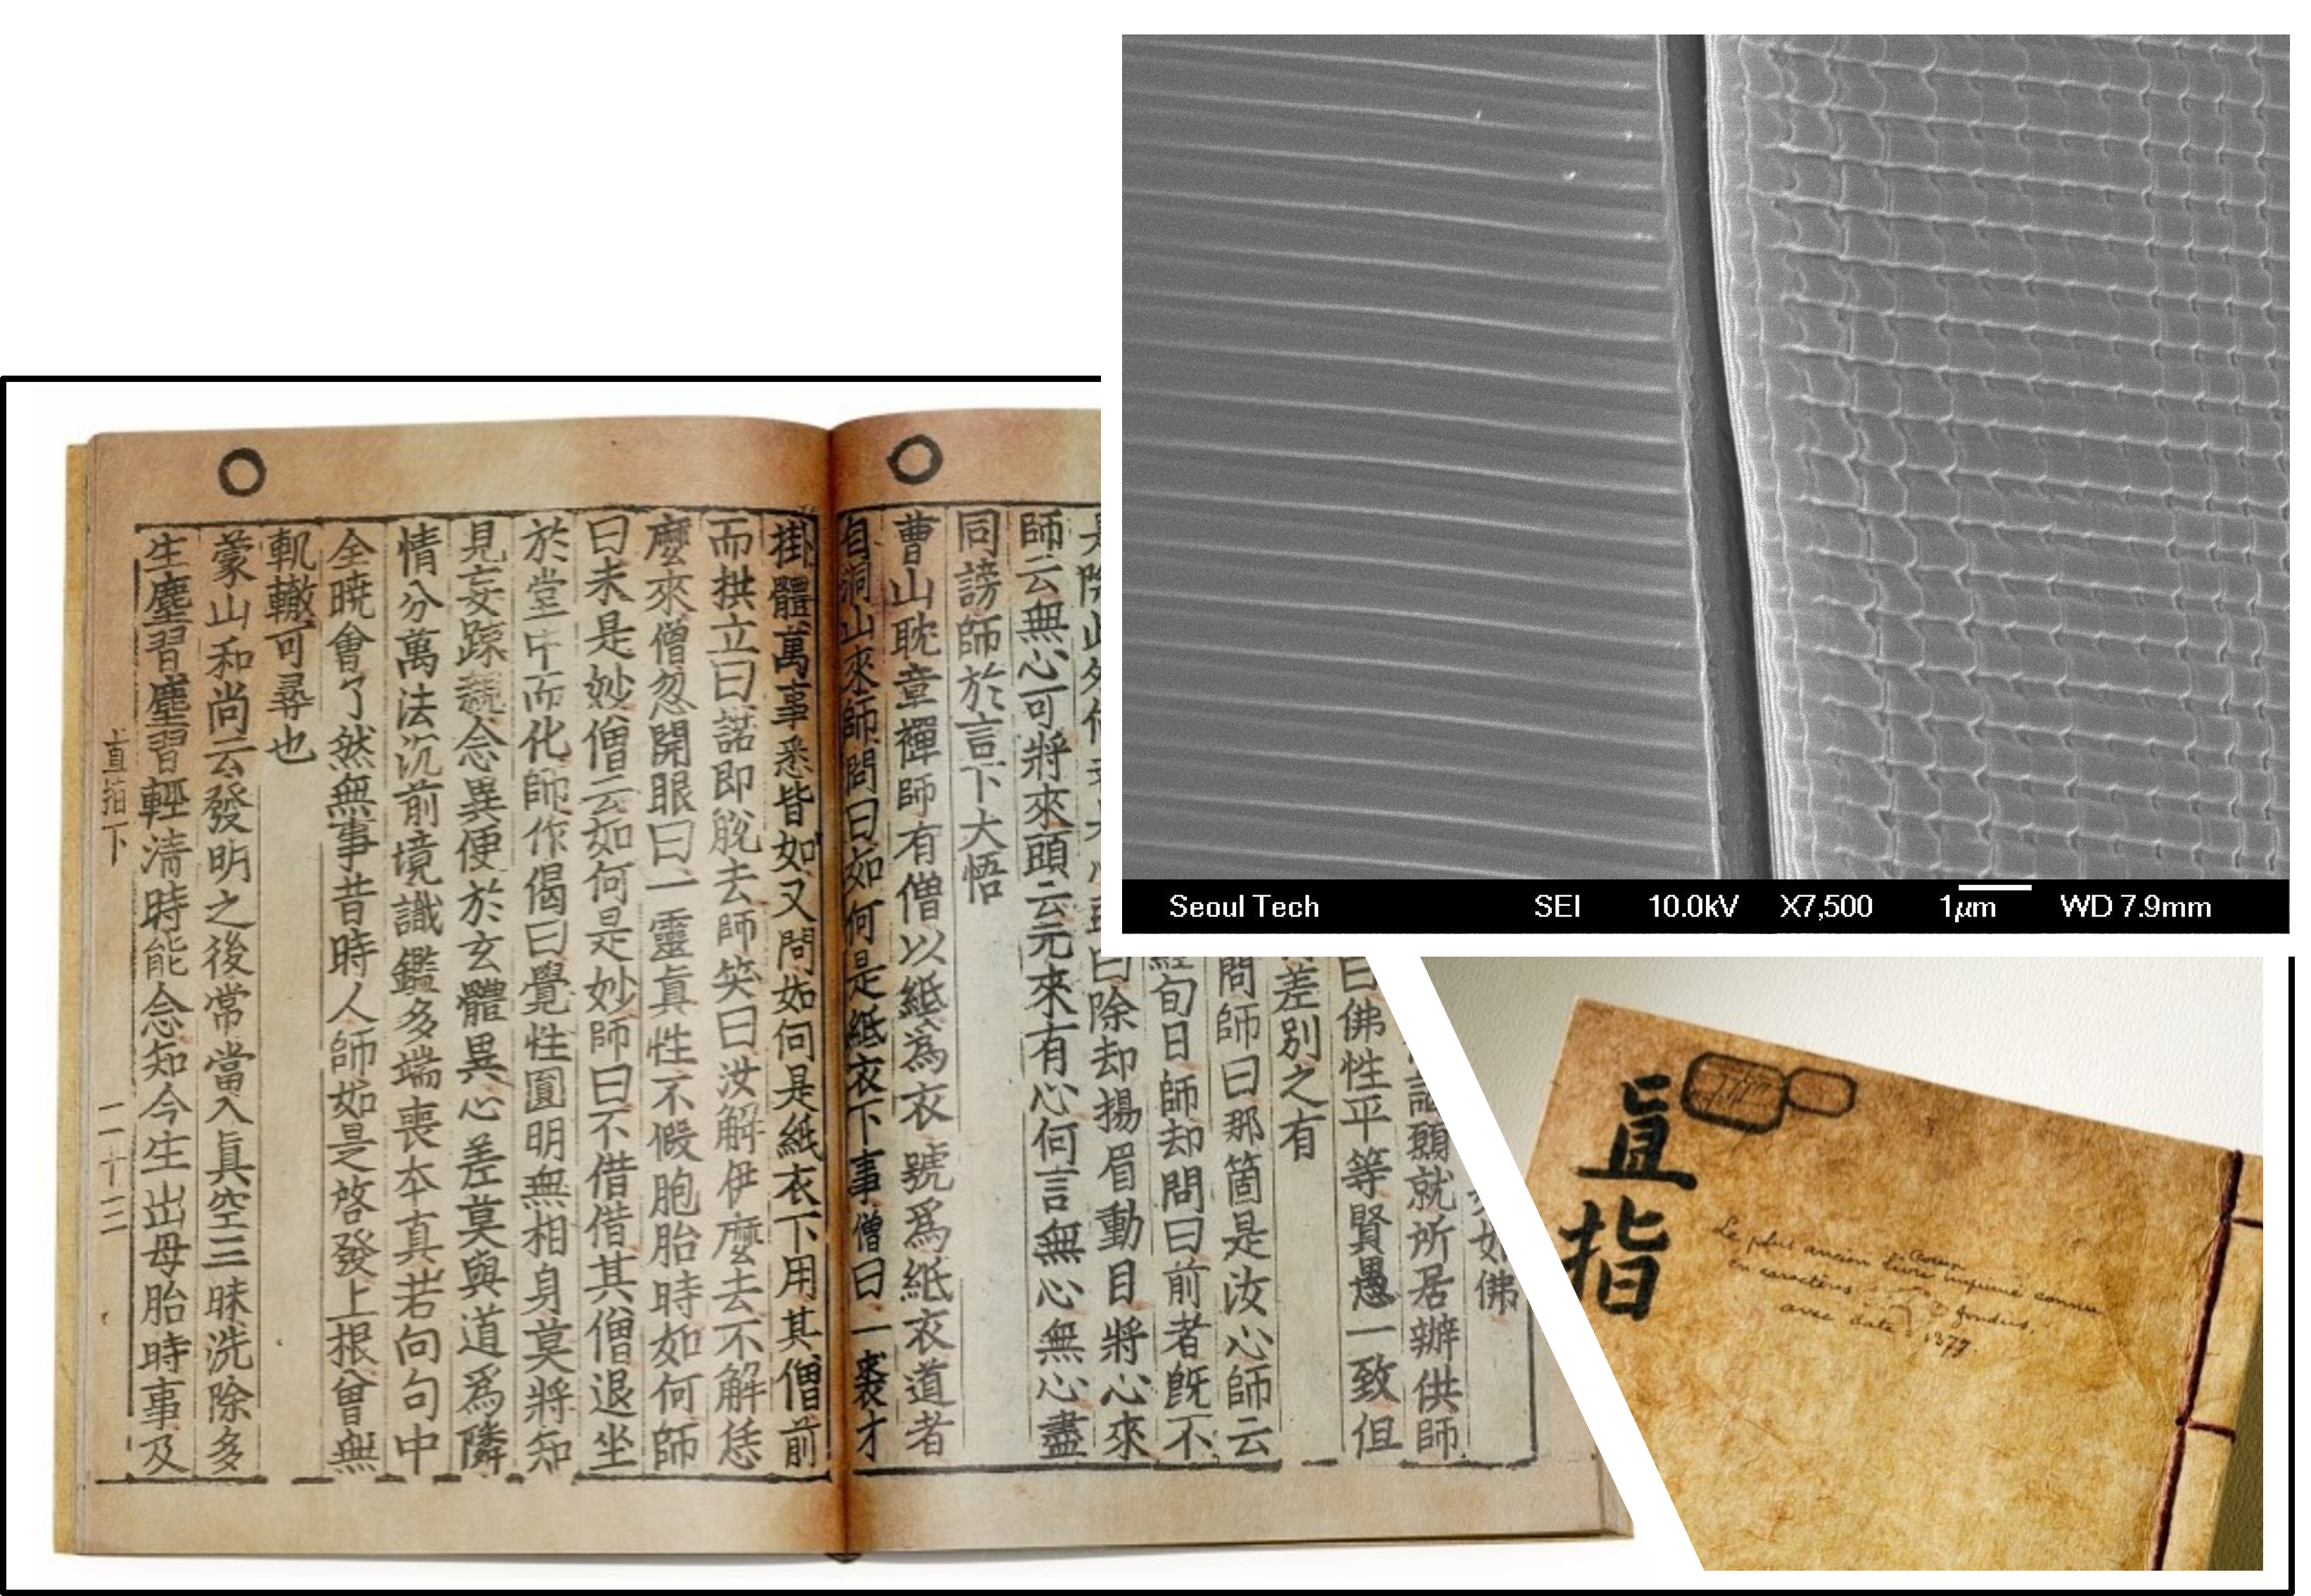 Seoul Tech SEI 10.0kV X7,500 1μm WD 7.9mm
如佛
願就所居辦供師
曰佛性平等賢愚一致但
差別之有
問師曰那箇是汝心師云
經旬日師却問曰前者旣不
曰除却揚眉動目將心來
師云無心可將來頭云元來有心何言無心無心盡
同謗師於言下大悟
曹山耽章禪師有僧以紙爲衣號爲紙衣道者
自洞山來師問曰如何是紙衣下事僧曰一裘才
掛體萬事悉皆如又問如何是紙衣下用其僧前
而拱立曰諾即脫去師笑曰汝解伊麽去不解恁
麽來僧忽開眼曰一靈真性不假胞胎時如何師
曰未是妙僧云如何是妙師曰不借借其僧退坐
於堂中而化師作偈曰覺性圓明無相身莫將知
見妄踈親念異便於玄體異心差莫與道爲隣
情分萬法沉前境識鑑多端喪夲真若向句中
全曉會了然無事昔時人師如是啓發上根曾無
軌轍可尋也
蒙山和尚云發明之後常當入真空三昧洗除多
生塵習塵習輕淸時能念知今生出母胎時事及
直指下
二十三
直指
Le plus ancien livre imprimé connu
en caractères fondus,
avec date = 1377.